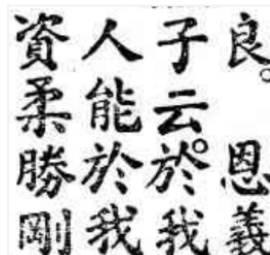 良。　恩義
子云。於我
人能於我
資柔勝剛